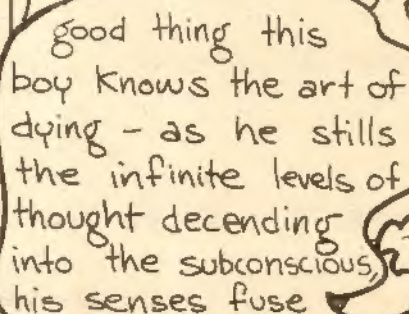 good thing this
boy knows the art of
dying - as he stills
the infinite levels of
thought decending
into the subconscious,
his senses fuse